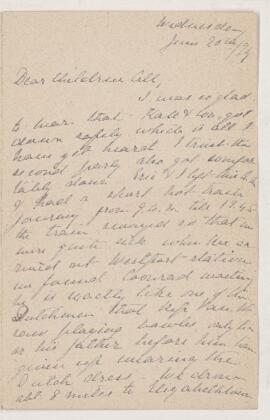 Wednesday
June 20th/
Dear Children All,
I was so glad
to hear that Kate & Co. got
down safely which is all I
have yet heard. I trust the
second party also got comfor
tably down. Eric & I left this
& had a short hot train
journey from 9 a.m. till 12.45
the train swayed so that
were quite sick when we ar
rived at Westport station
we found Coonrad waiting
he is exactly like one of the
Dutchmen that Rip Van
saw playing bowls, only he
as his father before him have
given up wearing the
Dutch dress. We drove
abt 8 miles to Elizabethtown